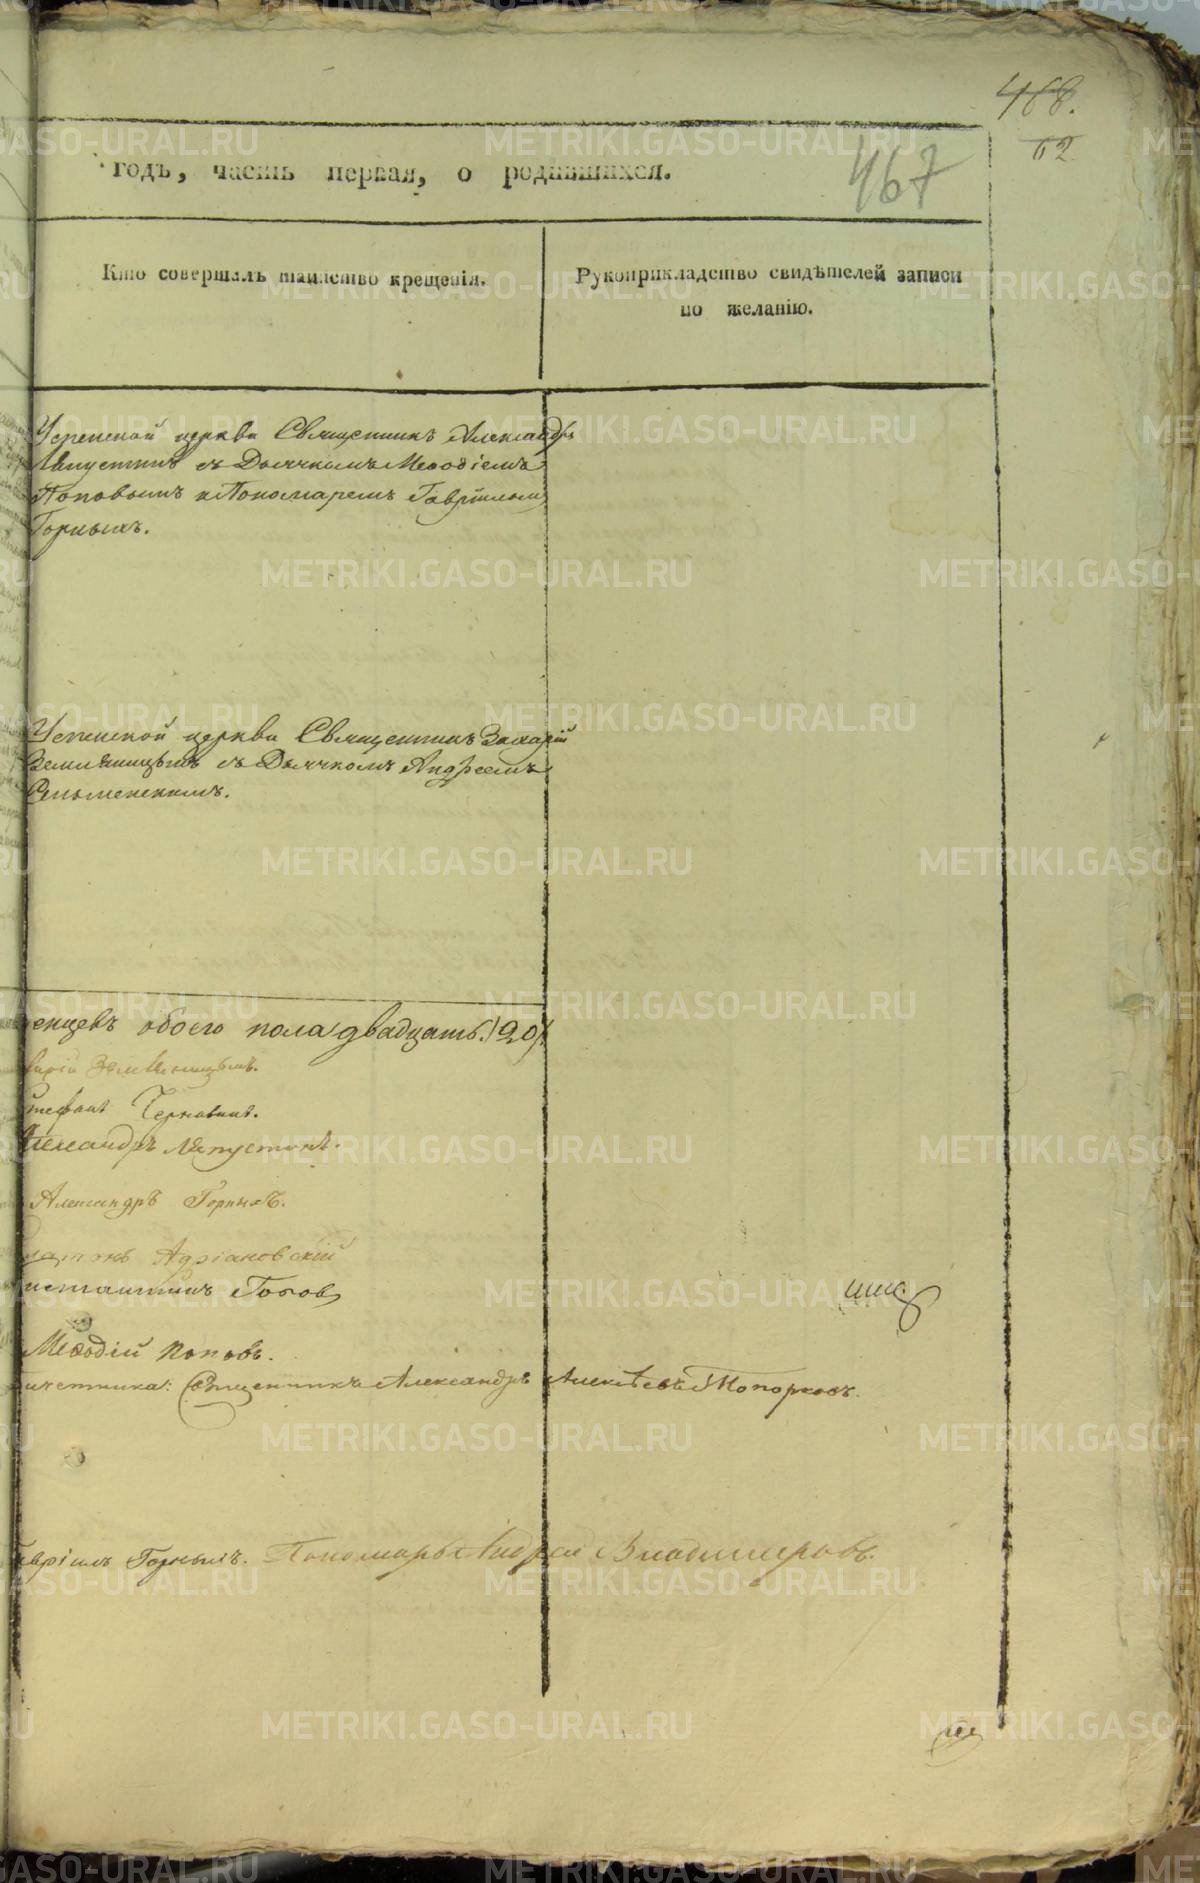 468.
62
467
годъ, часть первая, о родившихся.
Кто совершалъ таинство крещенія.
Рукоприкладство свидѣтелей записи
по желанію.
Успенской церкви Священникъ Александръ
съ Дьячкомъ Меѳодіемъ
Поповымъ и Пономаремъ Гавріиломъ
Горныхъ.
Успенской церкви Священникъ Захарій
Земляницынъ съ Дьячкомъ Андреемъ
денцевъ обоего пола двадцать (20)
Земляницынъ.
Стефанъ
Александръ
Александръ Горныхъ.
Платонъ Адріановскій
Поповъ
Меѳодій Поповъ.
Священникъ Александръ Алексѣевъ Топорковъ.
Гавріилъ Горныхъ. Пономарь Андрей Владимировъ.
METRIKI.GASO-URAL.RU